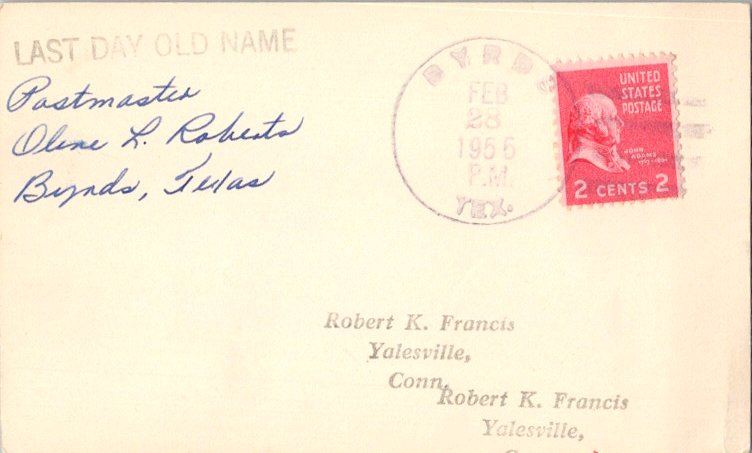 LAST DAY OLD NAME
Postmaster
Olene L. Roberts
Byrds, Texas
BYRDS
FEB
28
1956
P.M.
TEX.
UNITED
STATES
POSTAGE
JOHN
ADAMS
2 CENTS 2
Robert K. Francis
Yalesville,
Conn.
Robert K. Francis
Yalesville,